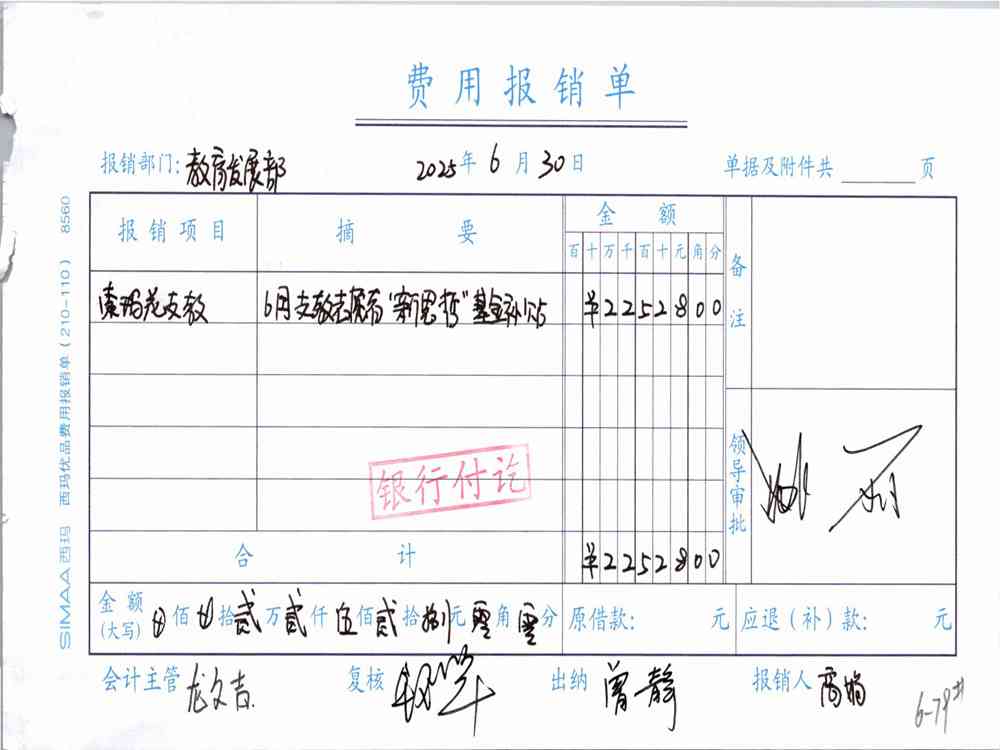 费用报销单
报销部门：教育发展部 2025年6月30日 单据及附件共 页
报销项目 摘要 金额 备注
百十万千百十元角分
索玛花支教 6月支教志愿者“新恩哲”基金补贴 ¥2252800
领导审批
银行付讫
合计 ¥2252800
金额(大写) 佰 拾贰万贰仟伍佰贰拾捌元零角零分 原借款： 元 应退（补）款： 元
会计主管 龙文吉 复核 出纳 曾静 报销人 高娟
6-79#
SIMAA西玛 西玛优品费用报销单（210-110） 8560